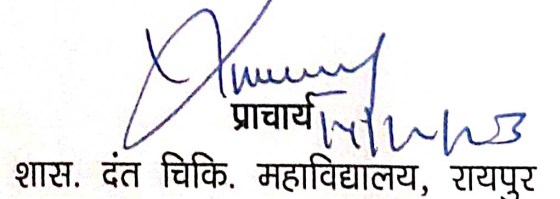 प्राचार्य
शास. दंत चिकि. महाविद्यालय, रायपुर